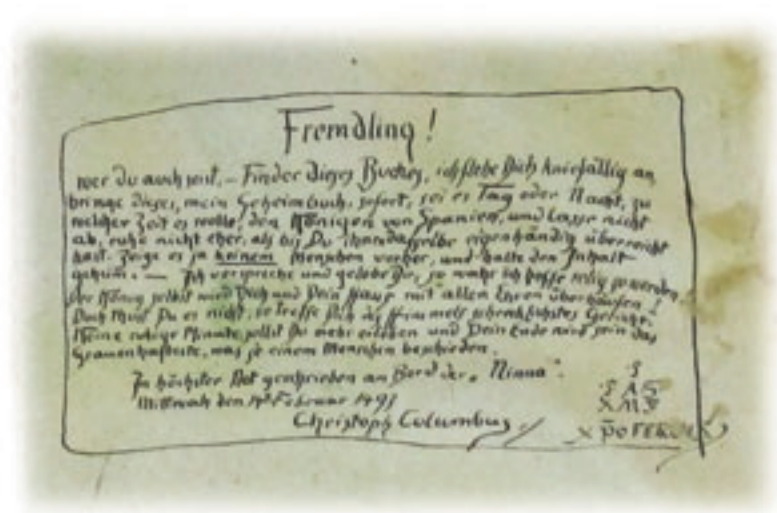 Fremdling!
wer Du auch seist, – Finder dieses Buches, ich flehe Dich kniefällig an
bringe dieses, mein Geheimbuch, sofort, sei es Tag oder Nacht, zu
welcher Zeit es wolle, den Königen von Spanien, und lasse nicht
ab, ruhe nicht eher, als bis Du ihnen dasselbe eigenhändig überreicht
hast. Zeige es ja keinem Menschen vorher, und halte den Inhalt
geheim. — Ich verspreche und gelobe Dir, so wahr ich hoffe selig zu werden
der König selbst wird Dich und Dein Haus mit allen Ehren überhäufen!
Doch thust Du es nicht, so treffe Dich des Himmels schrecklichstes Gericht.
Keine ruhige Minute sollst Du mehr erleben und Dein Ende wird sein das
Grauenhafteste, was je einem Menschen beschieden.
In höchster Not geschrieben an Bord der „Ninna“.
Mittwoch den Februar 1493
Christoph Columbus
S
S A S
X M Y